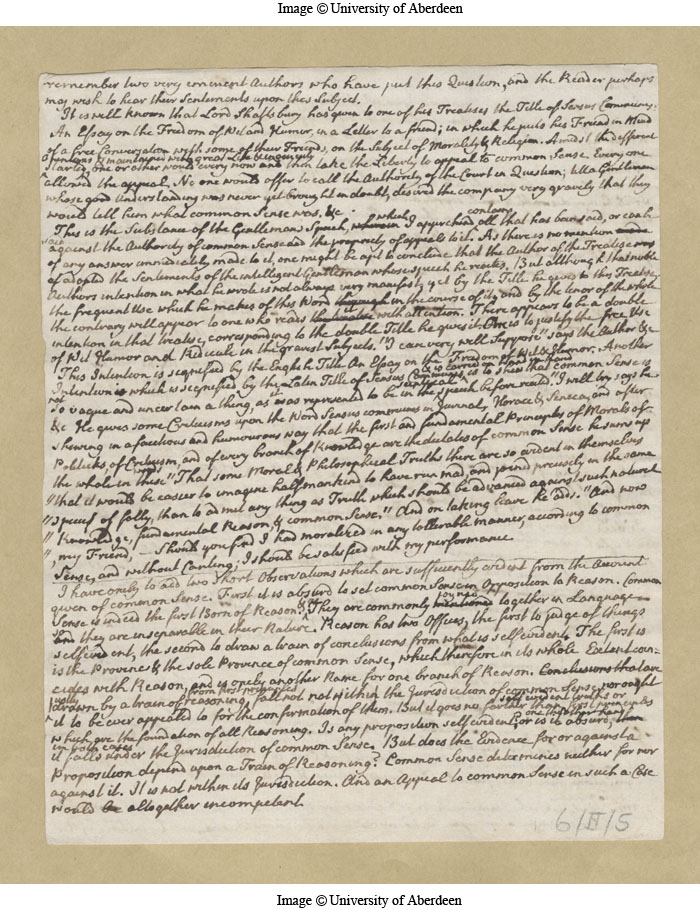 Image © University of Aberdeen
remember two very eminent Authors who have put this Question, and the Reader perhaps
may wish to hear their Sentements upon this Subject.
It is well known that Lord Shaftsbury has given to one of his Treatises the Title of Sensus Communis.
An Essay on the Freedom of Wit and Humor, in a Letter to a friend; in which he puts his Friend in Mind
of a free Conversation with some of their Friends, on the Subject of Morality & Religion. Amidst the different
opinions started & maintained with great Life & Ingenuity
one or other would every now and then take the Liberty to appeal to common Sense. Every one
allowed the appeal, No one would offer to call the Authority of the Court in Question; till a Gentleman
whose good Understanding was never yet brought in doubt, desired the company very gravely that they
would tell him what common Sense was, &c.
This is the Substance of the Gentlemans Speech, which I apprehend contains all that has been said, or can be said
against the Authority of common Sense and the propriety of appeals to it. As there is no mention
of any answer immediately made to it, one might be apt to conclude that the Author of the Treatise
adopted the Sentements of the intelligent Gentleman whose speech he recites. But although that noble
Authors intention in what he wrote is not always very manifest, yet by the Title he gives to this Treatise,
the frequent Use which he makes of this Word in the course of it, and by the tenor of the whole
the contrary will appear to one who reads with attention. There appears to be a double
intention in that treatise, corresponding to the double Title he gives it. One is to justify the free Use
of Wit Humor and Ridicule in the gravest Subjects. "I can very well suppose" says the Author &c
This Intention is scegnified by the English Title An Essay on the Freedom of Wit & Humor. Another
Intention & is carried on hand in hand
which is scegnified by the Latin Title of Sensus Communis is to shew that common Sense is
not so vague and uncertain a thing, as it was represented to be in the sceptical Speech before recited. "I will try says he
&c He gives some Criticisms upon the Word Sensus communis in Juvenal, Horace & Seneca, and after
shewing in a facetious and humourous way that the first and fundamental Principles of Morals of
Politicks, of Criticism, and of every branch of Knowledge are the dictates of common Sense he sums up
the whole in these words "That some Moral & Philosophical Truths there are so evident in themselves
"that it would be easier to imagine half mankind to have run mad, and joind precisely in the same
"Species of folly, than to admit any thing as Truth which should be advanced against such natural
"Knowledge, fundamental Reason, & common Sense." And on taking leave he ads. "And now
", my Friend, — Should you find I had moralized in any tollerable manner, according to common
Sense, and without Canting; I should be satisfied with my performance
I have onely to add two short Observations which are sufficiently evident from the Account
given of common Sense. First it is absurd to set common Sense in Opposition to Reason. Common
Sense is indeed the first Born of Reason & They are commonly joyned together in Language
and they are inseparable in their Nature. Reason has two Offices, the first to judge of things
selfevident, the second to draw a train of conclusions from what is selfevident. The first is
is the Province & the sole Province of common Sense, which therefore in its whole Extent coin-
cides with Reason, and is onely another Name for one branch of Reason. Conclusions that are
justly drawn by a train of reasoning from first principles fall not within the Jurisdiction of common Sense, nor ought
it to be ever appeald to for the confirmation of them. But it goes no farther than self evident truths or first principles
which are the foundation of all Reasoning. Is any proposition selfevident, or is it absurd,
in both cases
it falls under the Jurisdiction of common Sense. But does the Evidence for or against a
Proposition depend upon a Train of Reasoning? Common Sense determines neither for nor
against it. It is not within its Jurisdiction. And an Appeal to common Sense in such a Case
would be altogether incompetent.
6/II/5
Image © University of Aberdeen